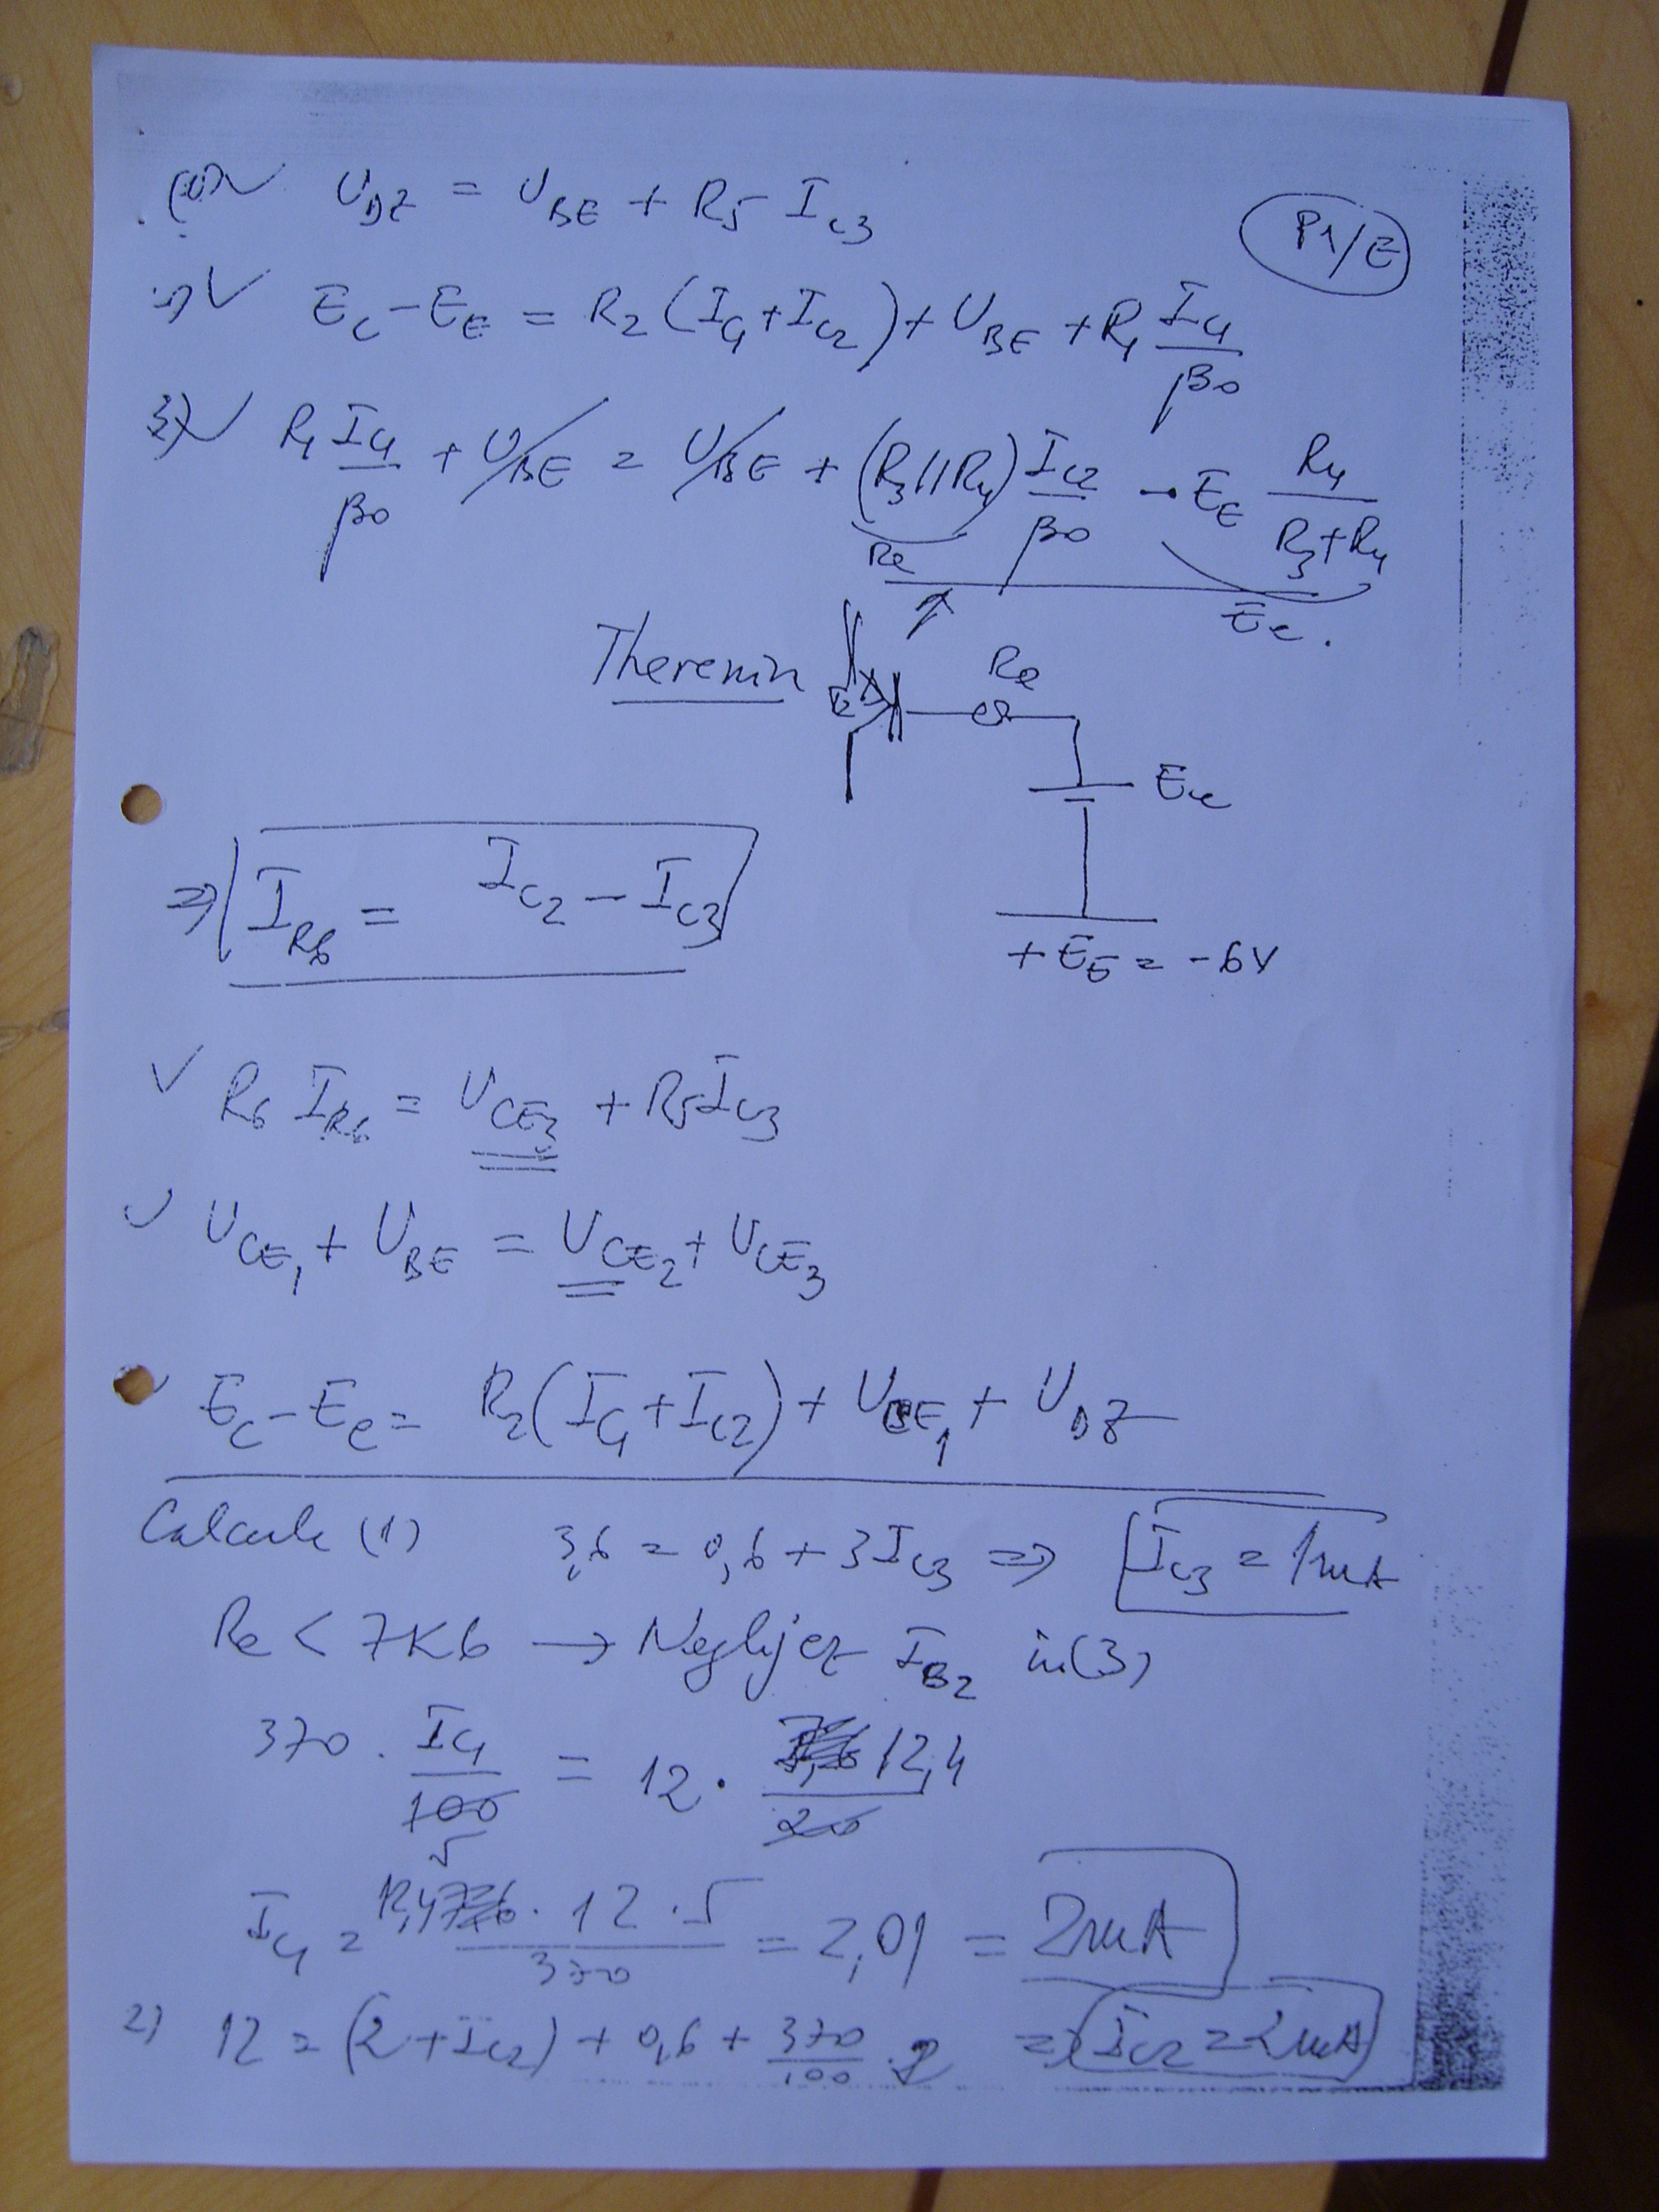 U_DZ = U_BE + R5 I_C3
P1/E
E_C - E_E = R2 (I_C1 + I_C2) + U_BE + R1 I_C1/β0
3) R1 I_C1/β0 + U_BE = U_BE + (R3||R4) I_C2/β0 - E_E R4/(R3+R4)
Re
Ee.
Thevenin
Re
Ee
⇒ I_R6 = I_C2 - I_C3
+E_E = -6V
R6 I_R6 = U_CE3 + R5 I_C3
U_CE1 + U_BE = U_CE2 + U_CE3
E_C - E_e = R2 (I_C1 + I_C2) + U_BE1 + U_DZ
Calcule (1) 3,6 = 0,6 + 3I_C3 ⇒ I_C3 = 1mA
Re < 7K6 → Neglijez I_B2 in (3)
370 . I_C1/100 = 12 . 12,4/20
5
I_C1 = 12,4 . 12 . 5/370 = 2,01 = 2mA
2) 12 = (2 + I_C2) + 0,6 + 370/100 . 2 ⇒ I_C2 = 2mA